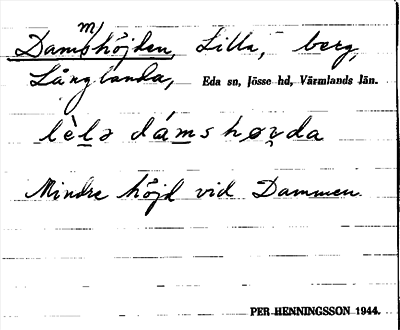 Dammshöjden, Lilla, berg,
Långlanda, Eda sn, Jösse hd, Värmlands län.
lè̀lə dámshøvda
Mindre höjd vid Dammen.
PER HENNINGSSON 1944.